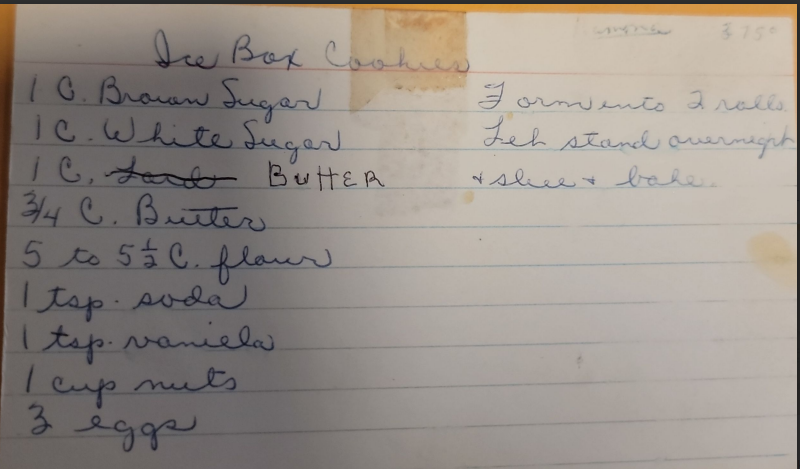 375°
Ice Box Cookies
1 C. Brown Sugar
1 C. White Sugar
1 C. Lard BUttER
3/4 C. Butter
5 to 5 1/2 C. flour
1 tsp. soda
1 tsp. vaniela
1 cup nuts
3 eggs
Form into 2 rolls
Let stand overnight
& slice & bake.